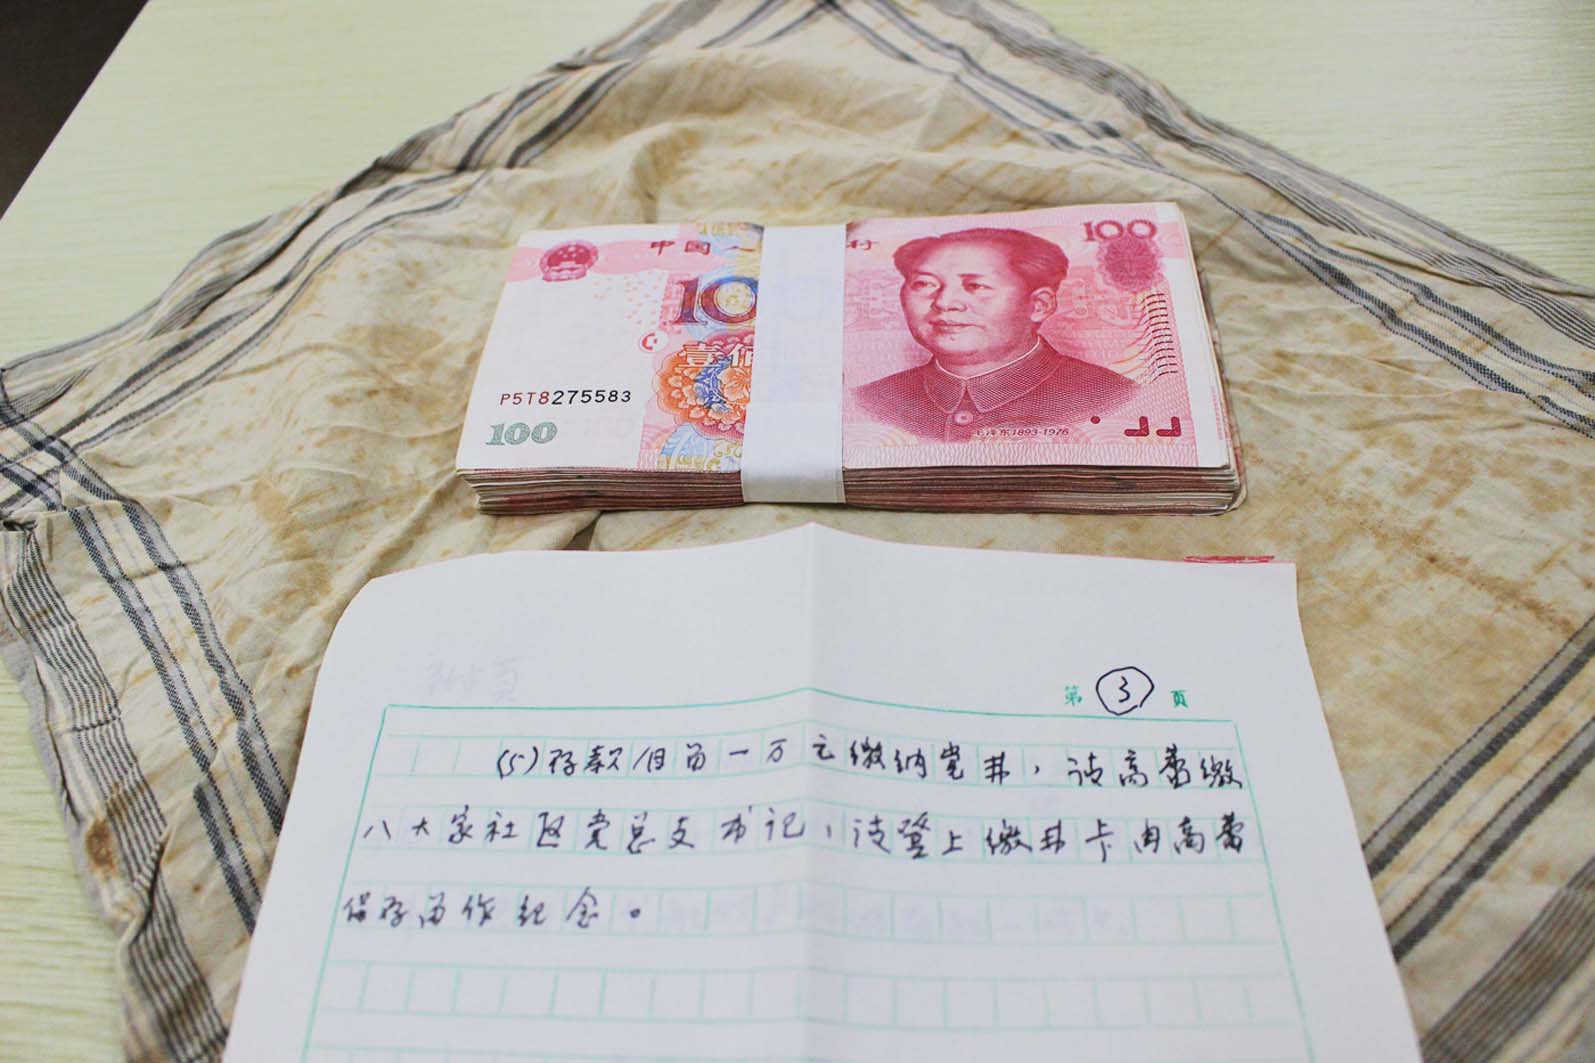 中国人
行
100
100
壹佰
P5T8275583
100
毛泽东1893-1976
第 3 页
(5)存款/自留一万元缴纳党费,请高蕾缴
八大家社区党总支书记,请登上缴费卡由高蕾
保存留作纪念。